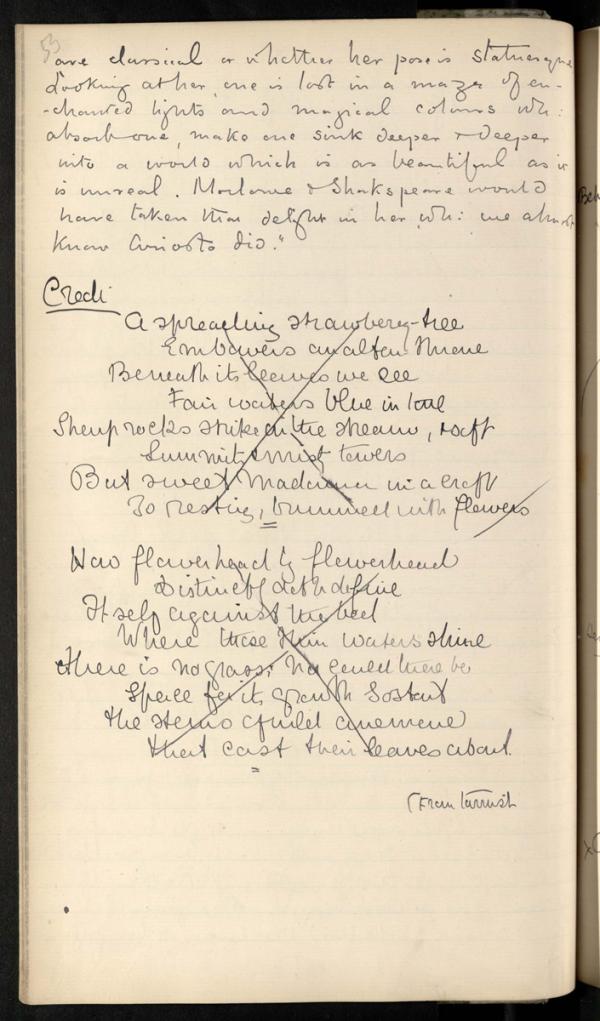 53
are classical or whether her pose is statuesque
Looking at her, one is lost in a maze of en-
-chanted lights and magical colours wh:
absorb one, make one sink deeper & deeper
into a world which is as beautiful as it
is unreal. Marlowe & Shakspeare would
have taken that delight in her, wh: we almost
know Ariosto did."
Credi
A spreading strawberry-tree
Embowers an altar throne
Beneath its leaves we see
Fair waters blue in tone
Sheup rocks strike in the stream, & aft
Summit mist towers
But sweet Madonna in a croft
Is resting, brimmed with flowers
How flowerhead by flowerhead
Distinctly doth define
Itself against the bed
Where these thin waters shine
There is no grass; no could there be
Space for its growth so stout
the stems of wild anemone
that cast their leaves about.
(From